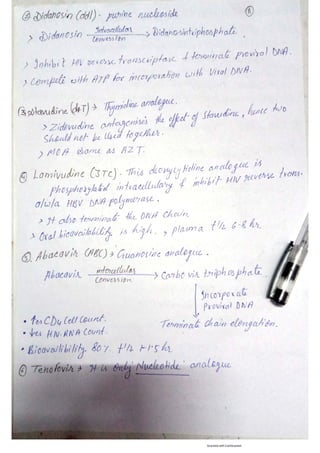 ② Didanosin (ddI)- purine nucleoside
⑧
> Didanosin intracellular conversion → Didanosintriphosphate.
> Inhibit HIV reverse transcriptase & terminate proviral DNA.
> Compete with ATP for incorporation with Viral DNA.
③ Stavudine (d4T) → Thymidine analogue.
> Zidovudine antagonisis the effect of stavudine, hence two
Should not be used together.
> MOA same as AZT.
④ Lamivudine (3TC)- This deoxycytidine analogue is
phosphorylated intracellulary & inhibit HIV reverse trans-
a/w/a HBV DNA polymerase.
> It also terminate the DNA chain
> Oral bioavailability is high. , plasma t1/2 6-8 hr.
⑤. Abacavir (ABC) → Guanosine analogue.
Abacavir intracellular conversion → Carbovir triphosphate.
↓ Incorporate
Proviral DNA
• ↑es CD4 Cell Count. Terminate chain elongation.
• ↓es HIV-RNA Count.
• Bioavailibility 80%. t1/2 1-1.5 hr
⑥ Tenofovir → It is only 'Nucleotide' analogue
Scanned with CamScanner